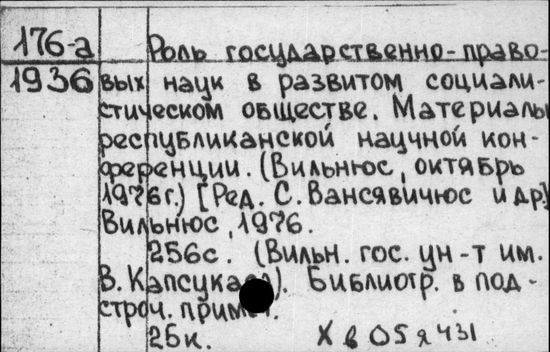 176-а Роль государственно-право-
1936 вых наук в развитом социали-
стическом обществе. Материалы
республиканской научной кон-
ференции. (Вильнюс, октябрь
1976г.) [Ред. С. Вансявичюс и др.]
Вильнюс, 1976.
256с. (Вильн. гос. ун-т им.
В. Капсукаса). Библиогр. в под-
строч. примеч.
25к. Х в 05 я 431